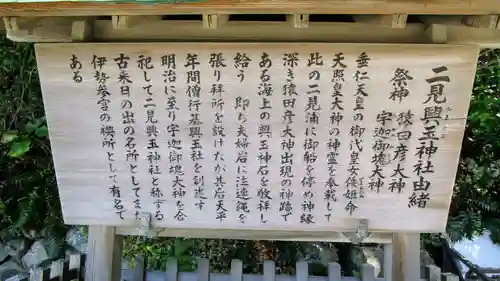 二見興玉神社由緒
ふたみおきたま
祭神 猿田彦大神
宇迦御魂大神
垂仁天皇の御代皇女倭姫命
天照皇大神の神霊を奉戴して
此の二見浦に御船を停め神縁
深き猿田彦大神出現の神跡で
ある海上の興玉神石を敬拝し
給う 即ち夫婦岩に注連縄を
張り拝所を設けたが其后天平
年間僧行基興玉社を創建す
明治に至り宇迦御魂大神を合
祀して二見興玉神社と称する
古来日の出の名所としてまた
伊勢参宮の禊所として有名で
ある